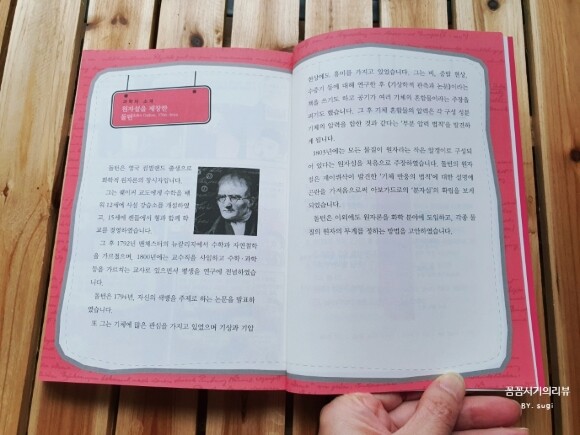 과학자 소개
원자설을 제창한
돌턴
돌턴은 영국 컴벌랜드 출생으로
화학적 원자론의 창시자입니다.
그는 퀘이커 교도에게 수학을 배
워 12세에 사설 강습소를 개설하였
고, 15세에 켄들에서 형과 함께 학
교를 경영하였습니다.
그 후 1793년 맨체스터의 뉴칼리지에서 수학과 자연철학
을 가르쳤으며, 1800년에는 교수직을 사임하고 수학·과학
등을 가르치는 교사로 있으면서 평생을 연구에 전념하였습
니다.
돌턴은 1794년, 자신의 색맹을 주제로 하는 논문을 발표하
였습니다.
또 그는 기체에 많은 관심을 가지고 있었으며 기상과 기압
현상에도 흥미를 가지고 있었습니다. 그는 비, 증발 현상,
수증기 등에 대해 연구한 후 《기상학적 관측과 논문》이라는
책을 쓰기도 하고 공기가 여러 기체의 혼합물이라는 주장을
펴기도 했습니다. 그 후 기체 혼합물의 압력은 각 구성 성분
기체의 압력을 합한 것과 같다는 '부분 압력 법칙'을 발견하
게 됩니다.
1803년에는 모든 물질이 원자라는 작은 알맹이로 구성되
어 있다는 원자설을 처음으로 주장하였습니다. 돌턴의 원자
설은 게이뤼삭이 발견한 '기체 반응의 법칙'에 대한 설명에
곤란을 가져옴으로써 아보가드로의 '분자설'의 확립을 보게
되었습니다.
돌턴은 이외에도 원자론을 화학 분야에 도입하고, 각종 물
질의 원자의 무게를 정하는 방법을 고안하였습니다.
꼼꼼시기의리뷰
BY. sugi